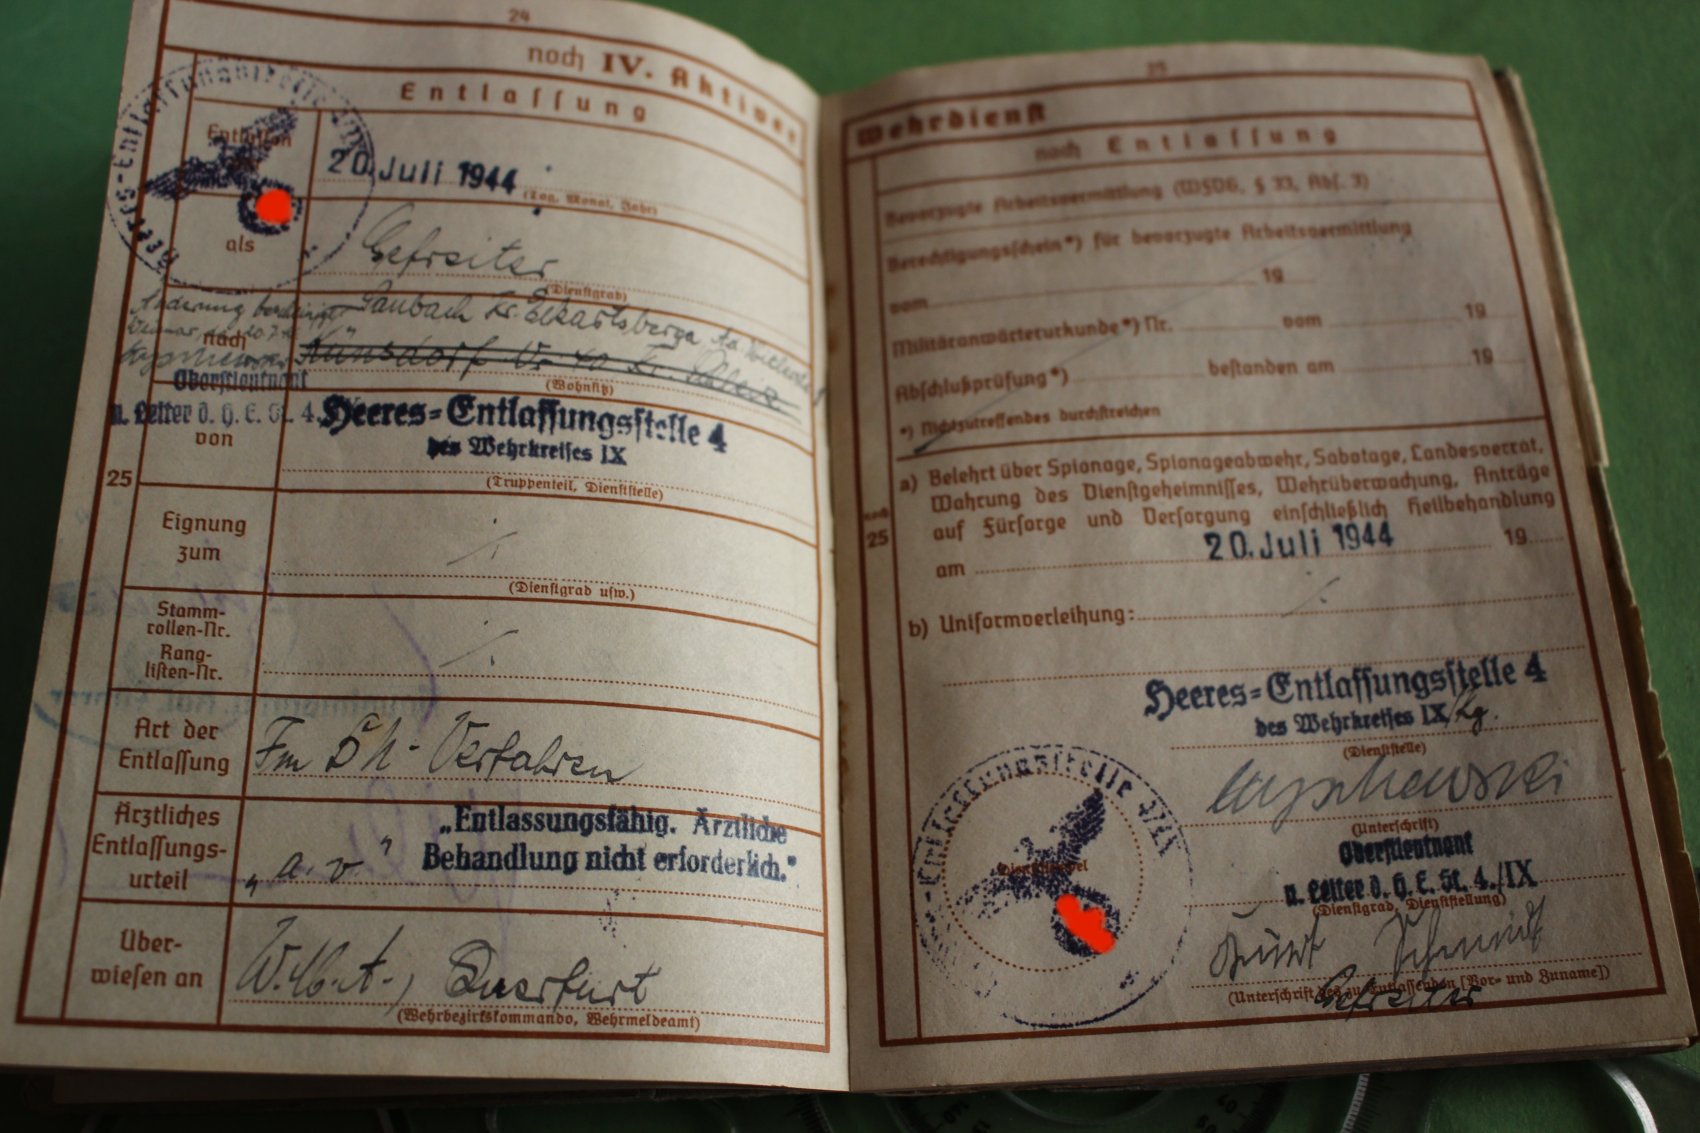 24
noch IV. Aktiver
Entlassung
Heeres-Entlassungsstelle
Entlassen
20. Juli 1944
(Tag, Monat, Jahr)
als
Gefreiter
(Dienstgrad)
Änderung Saubach Kr. Eckartsberga
nach
V. 40 Kr. Schleiz
(Wohnsitz)
Oberstleutnant
u. Leiter d. H. E. St. 4.
von
Heeres-Entlassungsstelle 4
des Wehrkreises IX
(Truppenteil, Dienststelle)
25
Eignung
zum
(Dienstgrad usw.)
Stamm-
rollen-Nr.
Rang-
listen-Nr.
Art der
Entlassung
Verfahren
Ärztliches
Entlassungs-
urteil
„a. v.“
„Entlassungsfähig. Ärztliche
Behandlung nicht erforderlich.“
Über-
wiesen an
W.M.A., Querfurt
(Wehrbezirkskommando, Wehrmeldeamt)
25
Wehrdienst
noch Entlassung
Bevorzugte Arbeitsvermittlung (WFVG, § 33, Abs. 3)
Berechtigungsschein*) für bevorzugte Arbeitsvermittlung
vom 19
Militäranwärterurkunde*) Nr. vom 19
Abschlußprüfung*) bestanden am 19
*) Nichtzutreffendes durchstreichen
noch
25
a) Belehrt über Spionage, Spionageabwehr, Sabotage, Landesverrat,
Wahrung des Dienstgeheimnisses, Wehrüberwachung, Anträge
auf Fürsorge und Versorgung einschließlich Heilbehandlung
am 20. Juli 1944 19
b) Uniformverleihung:
Heeres-Entlassungsstelle 4
des Wehrkreises IX
(Dienststelle)
(Unterschrift)
Oberstleutnant
u. Leiter d. H. E. St. 4./IX
(Dienstgrad, Dienststellung)
Dienststempel
Kurt Schmidt
(Unterschrift des zu Entlassenden [Vor- und Zuname])
Gefreiter